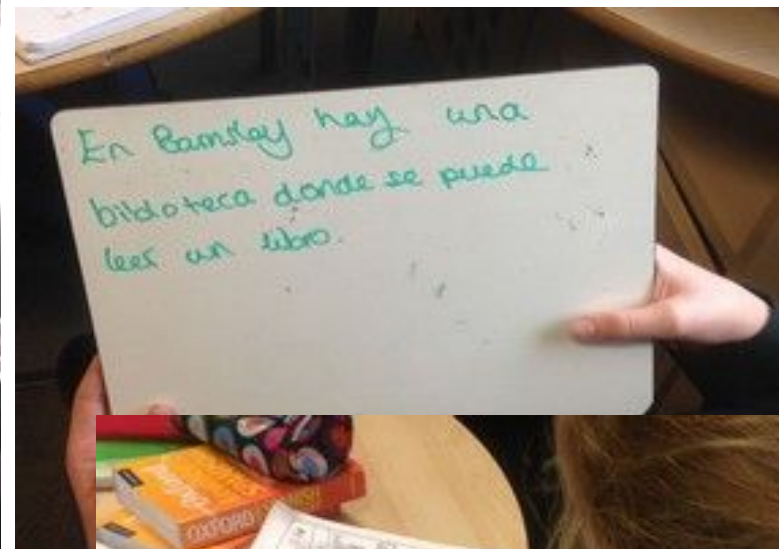 En Barnsley hay una
bibloteca donde se puede
leer un libro.
OXFORD SPANISH